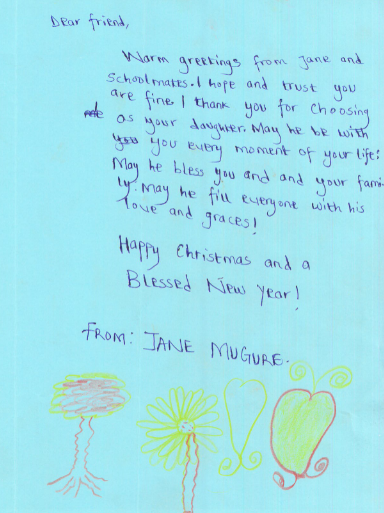 Dear friend,
Warm greetings from Jane and
schoolmates. I hope and trust you
are fine. I thank you for choosing
as your daughter. May he be with
you you every moment of your life.
May he bless you and and your fami-
ly. May he fill everyone with his
love and graces!
Happy Christmas and a
Blessed New Year!
FROM: JANE MUGURE.